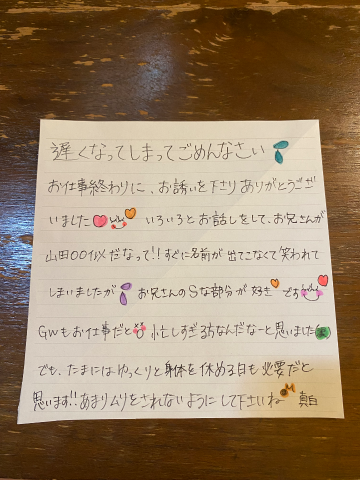 遅くなってしまってごめんなさい
お仕事終わりに、お誘いを下りありがとうござ
いました いろいろとお話しをして、お兄さんが
山田〇〇似だなって!!すぐに名前が出てこなくて笑われて
しまいましたが お兄さんのSな部分が好きです
GWもお仕事だと 忙しすぎる方なんだなーと思いました
でも、たまにはゆっくりと身体を休める日も必要だと
思います!!あまりムリをされないようにして下さいね 真白